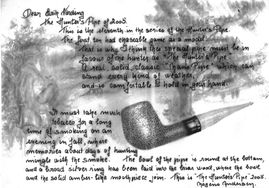 Dear Erik Nørding
the Hunter's Pipe of 2005.
This is the eleventh in the series of the Hunter's Pipe.
The first ten had exposable game as a model.
That is why I think this special pipe must be in
favour of the hunter as "The Hunter's Pipe".
A real solid classic "Frame Pipe" which can
stand every kind of weather,
and is comfortable to hold in your hand.
It must take much
tobacco for a long
time of smoking on an
evening in fall, where
memories about days of hunting
mingle with the smoke. The bowl of the pipe is round at the bottom,
and a broad silver ring has been laid into the briar wood, where the bowl
and the solid amber-like mouthpiece join. This is "The Hunter's Pipe" 2005.
Mogens Andersen